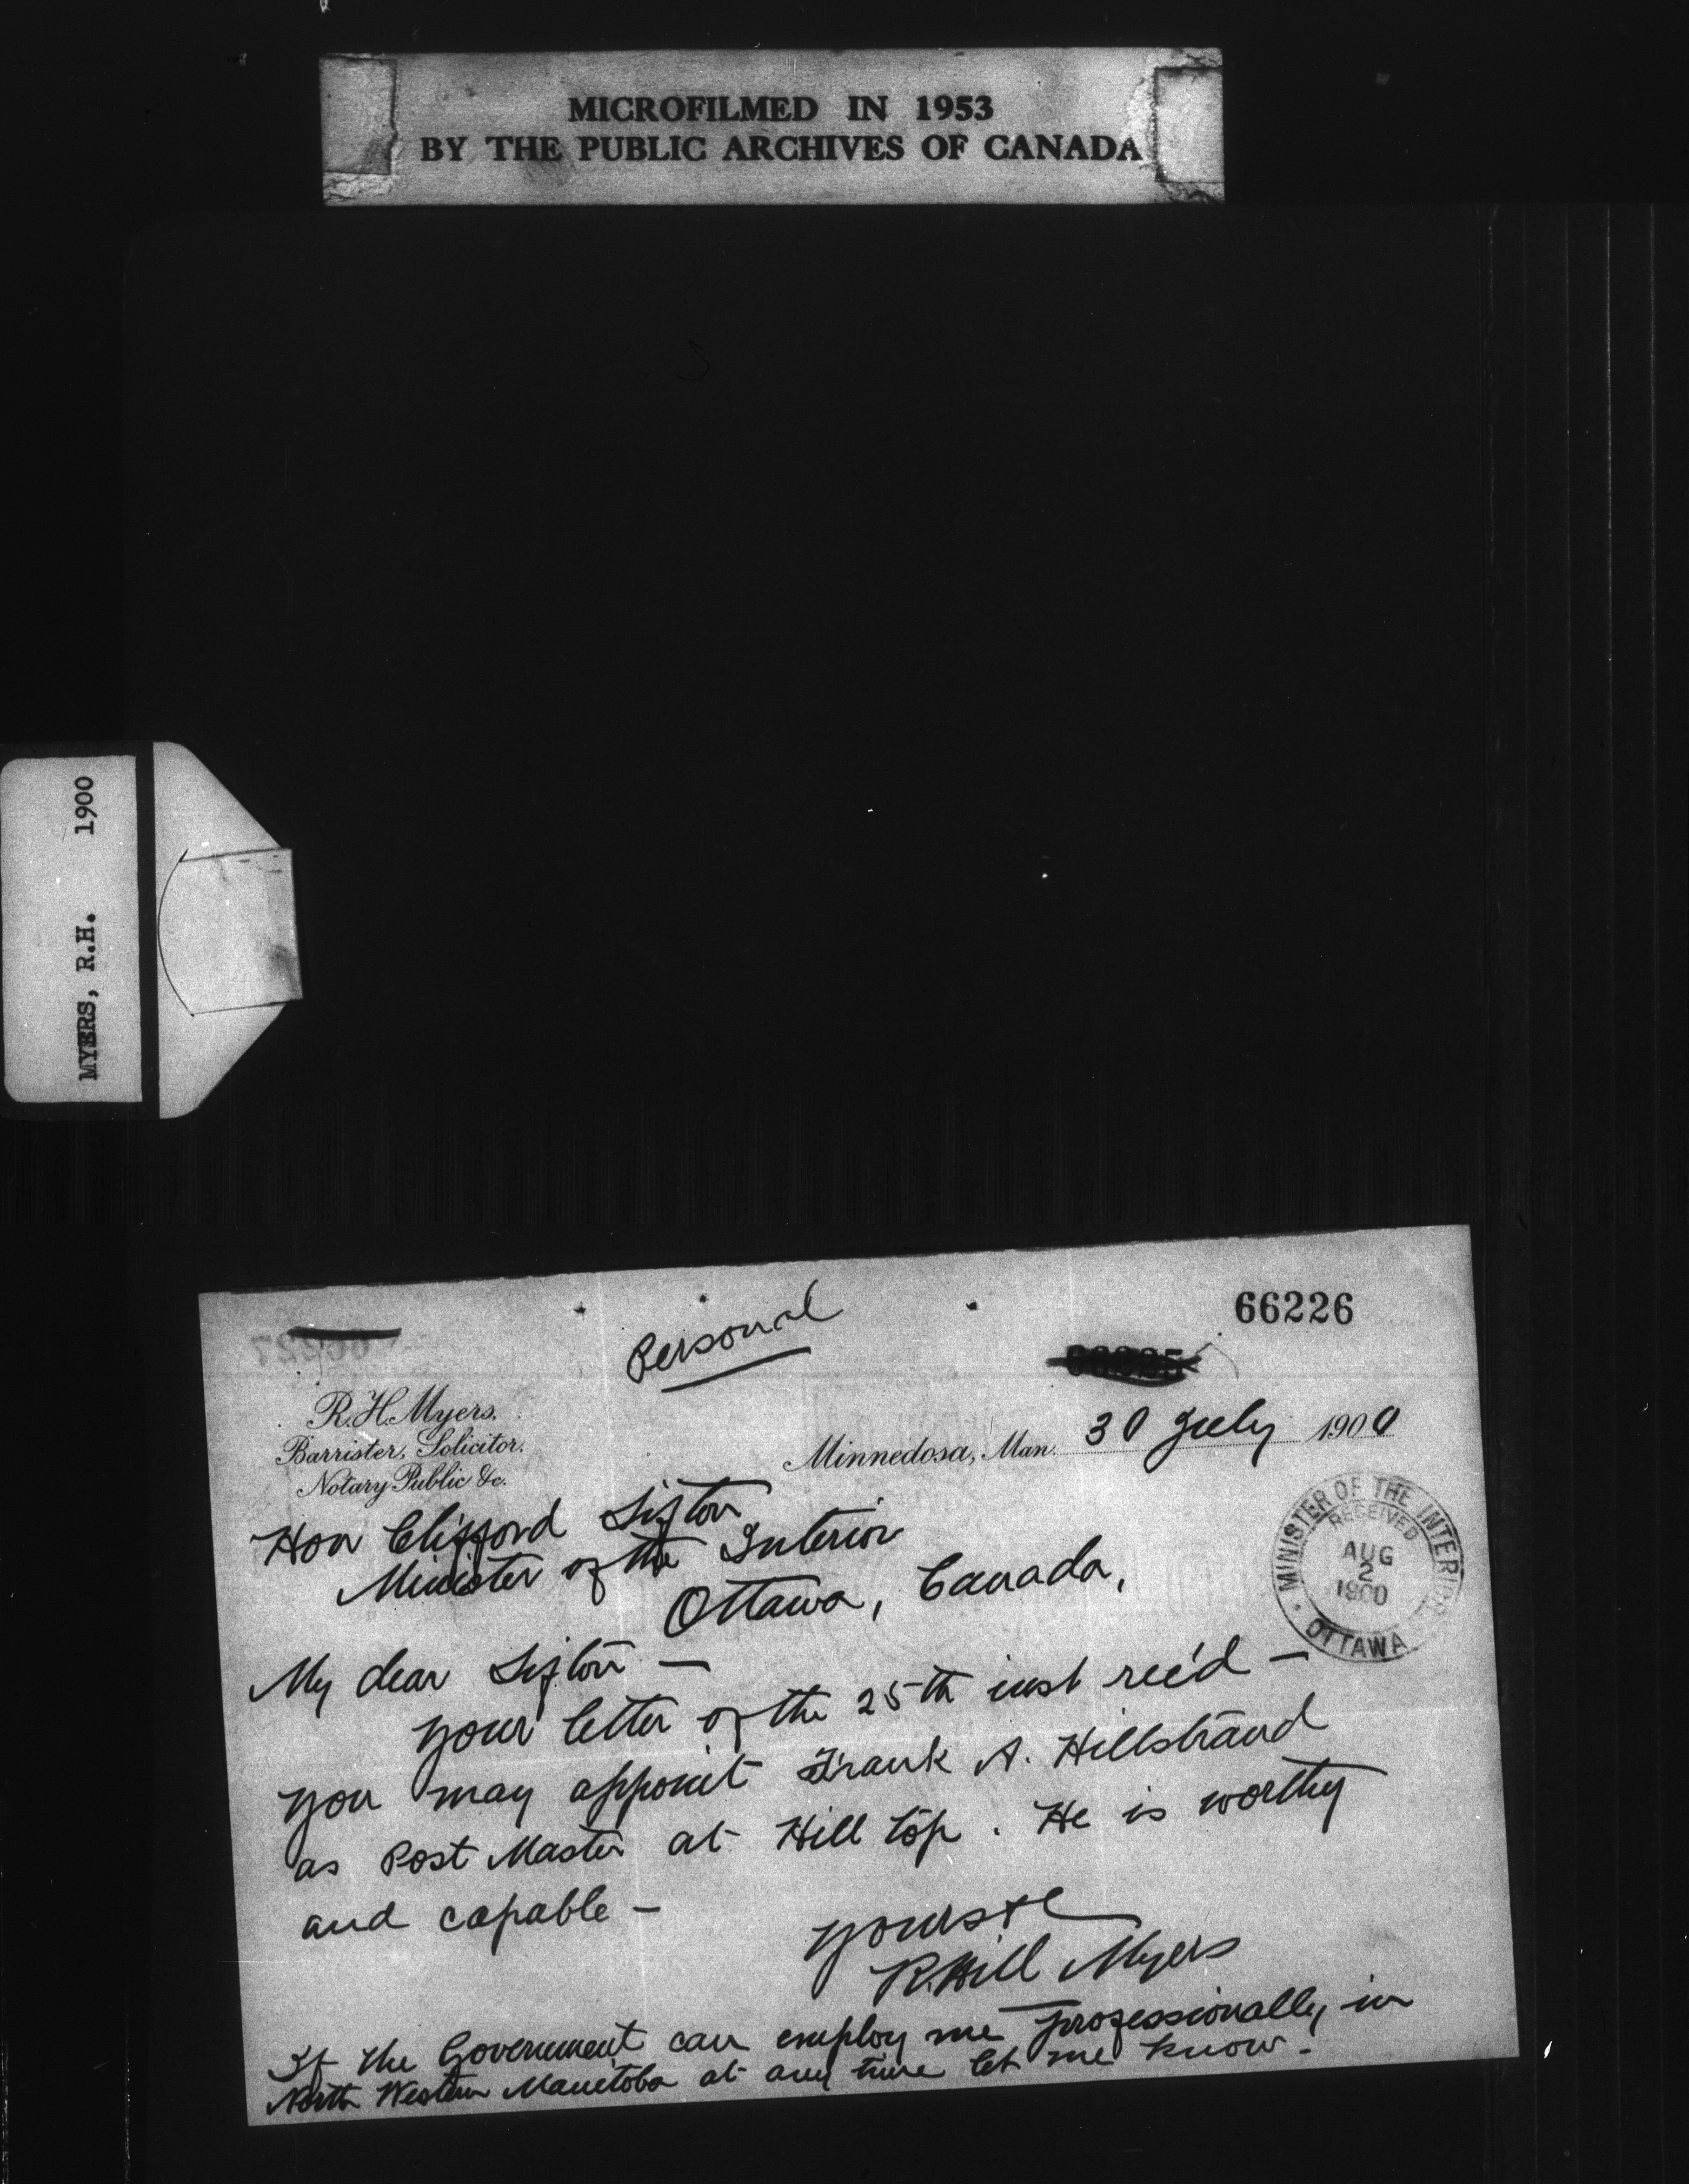 MICROFILMED IN 1953
BY THE PUBLIC ARCHIVES OF CANADA
MYERS, R.H. 1900
66226
Personal
R.H. Myers.
Barrister, Solicitor.
Notary Public &c.
Minnedosa, Man. 30 July 1900
MINISTER OF THE INTERIOR
RECEIVED
AUG
2
1900
OTTAWA
Hon Clifford Sifton
Minister of the Interior
Ottawa, Canada,
My dear Sifton —
your letter of the 25th inst rec'd —
you may appoint Frank A. Hillstrand
as Post Master at Hill top. He is worthy
and capable —
yours &c
R. Hill Myers
If the Government can employ me professionally in
North Western Manitoba at any time let me know.